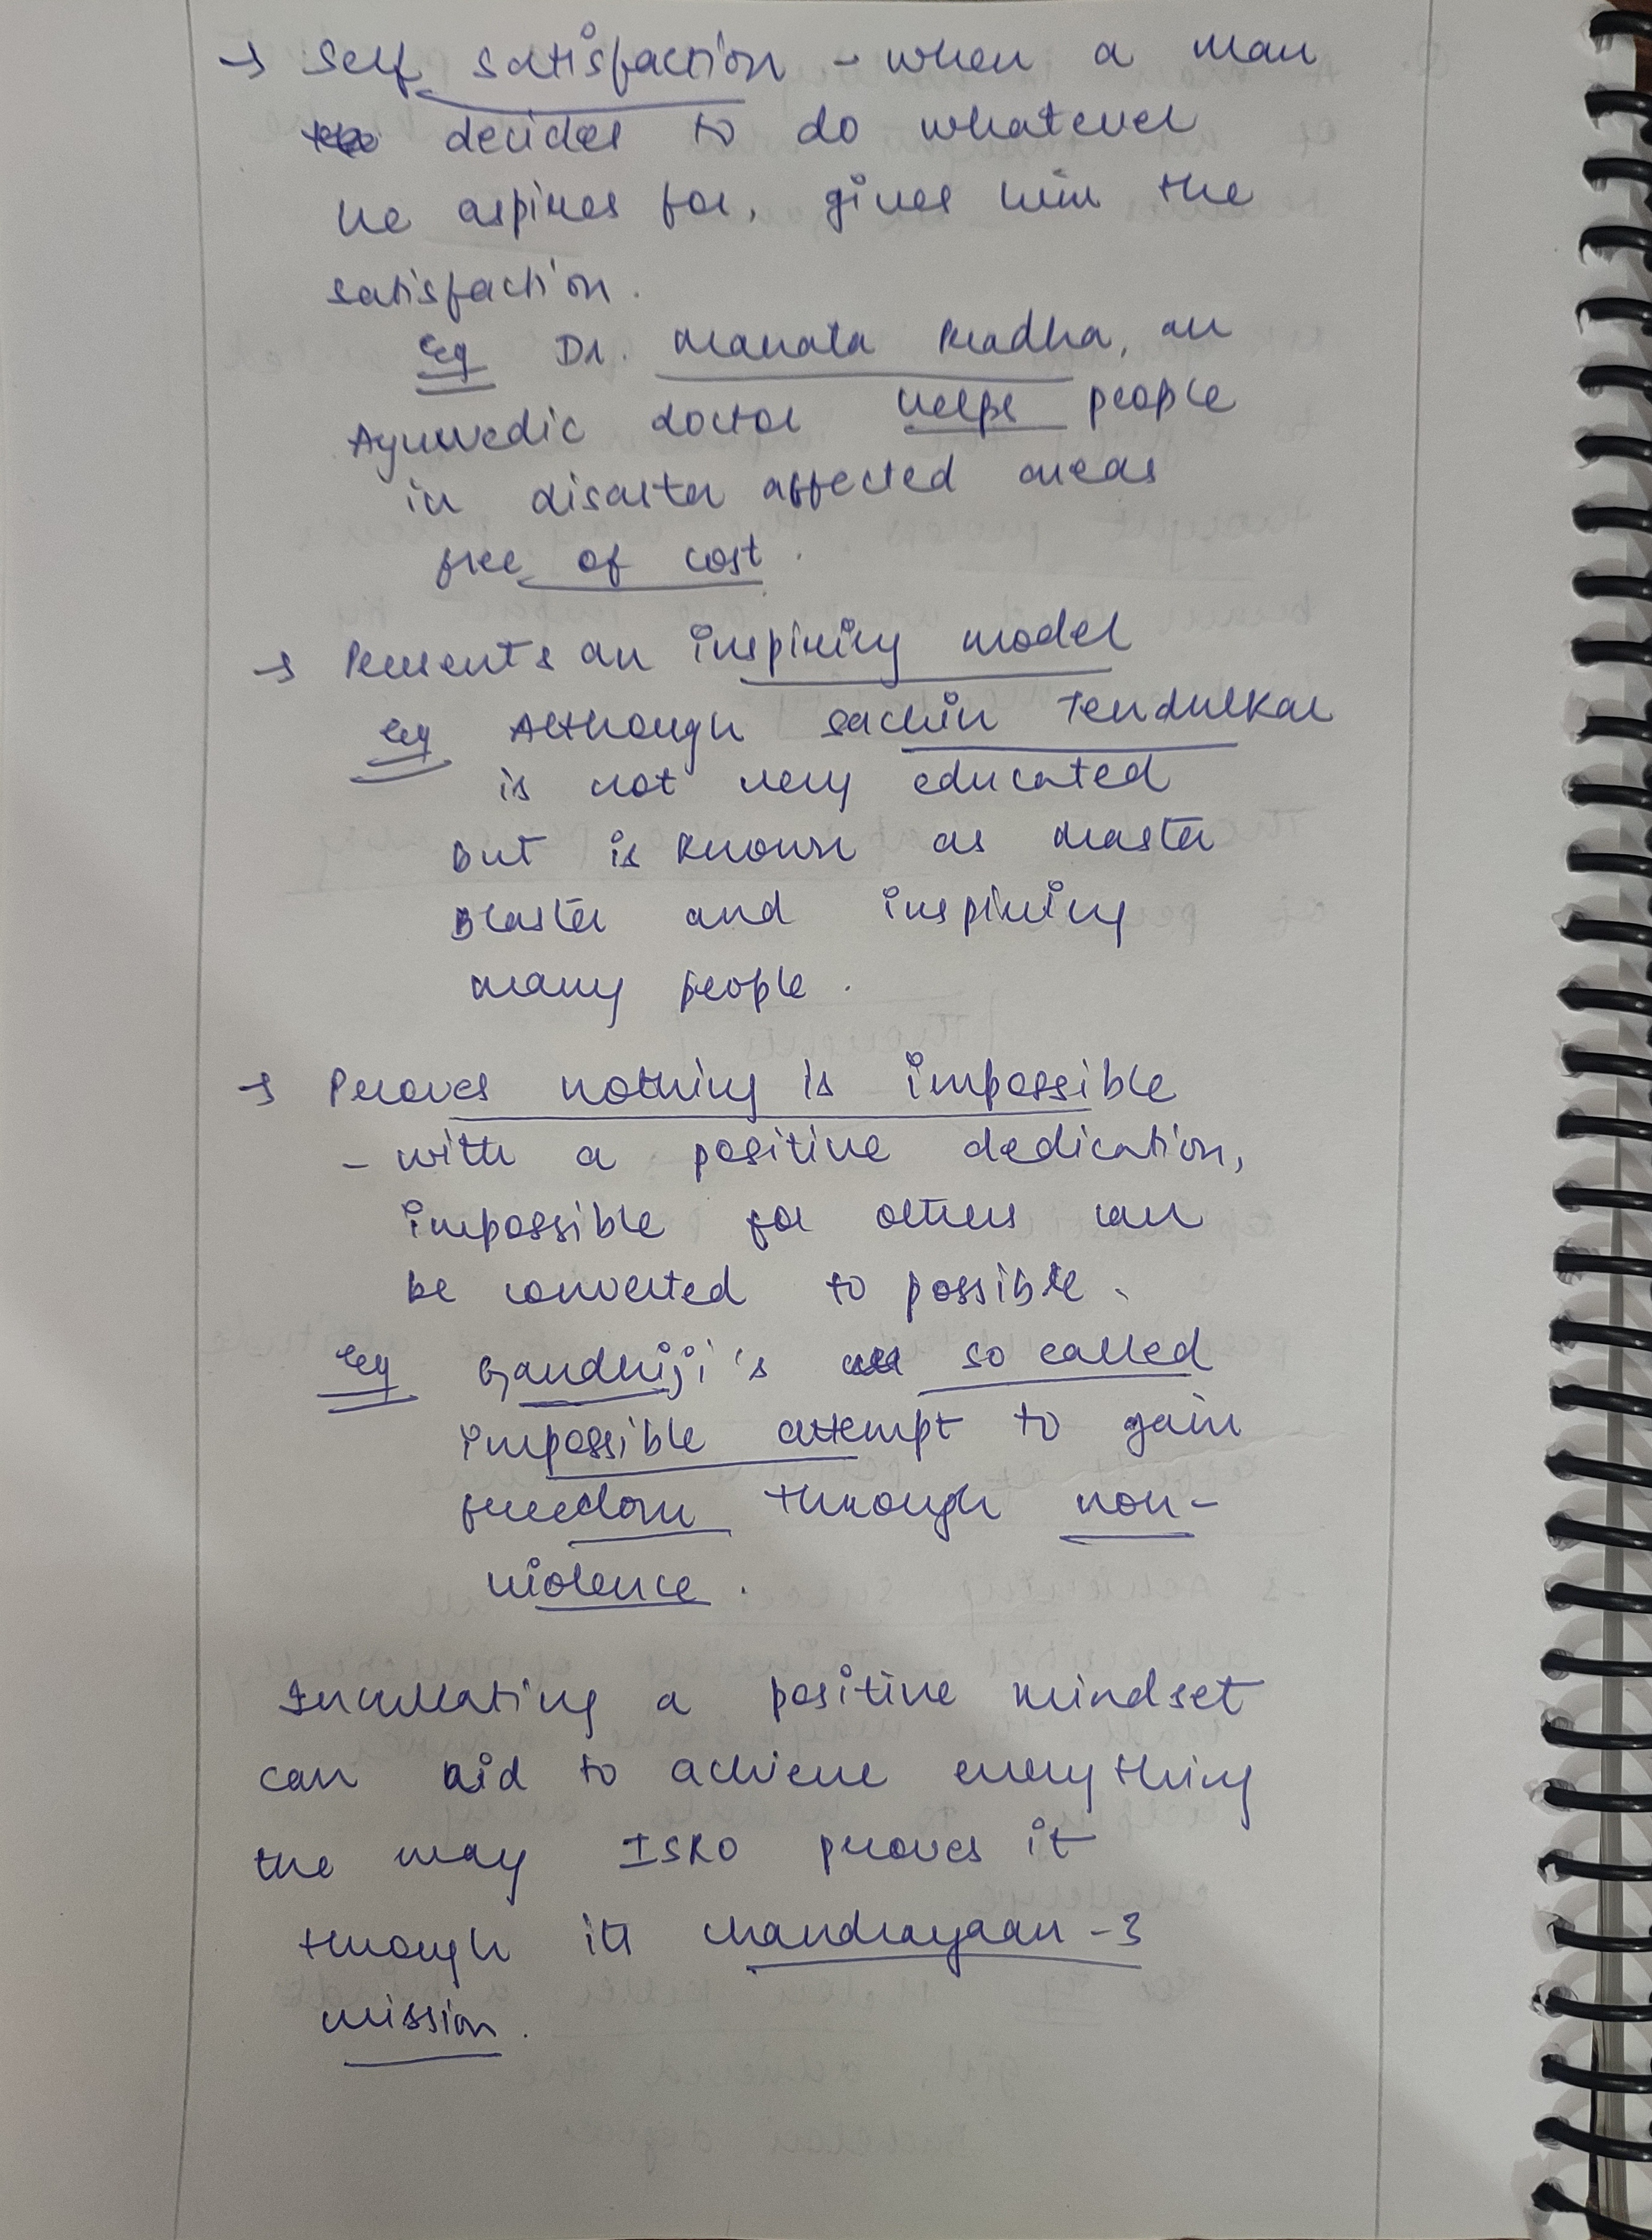 → Self satisfaction - when a man
decides to do whatever
he aspires for, gives him the
satisfaction.
Eg Dr. Mamata Pradha, an
Ayurvedic doctor helps people
in disaster affected areas
free of cost.
→ Presents an inspiring model
Eg Although Sachin Tendulkar
is not very educated
but is known as master
blaster and inspiring
many people.
→ Proves nothing is impossible
- with a positive dedication,
impossible for others can
be converted to possible.
Eg Gandhiji's so called
impossible attempt to gain
freedom through non-
violence.
Inculcating a positive mindset
can aid to achieve everything
the way ISRO proves it
through its Chandrayaan-3
mission.